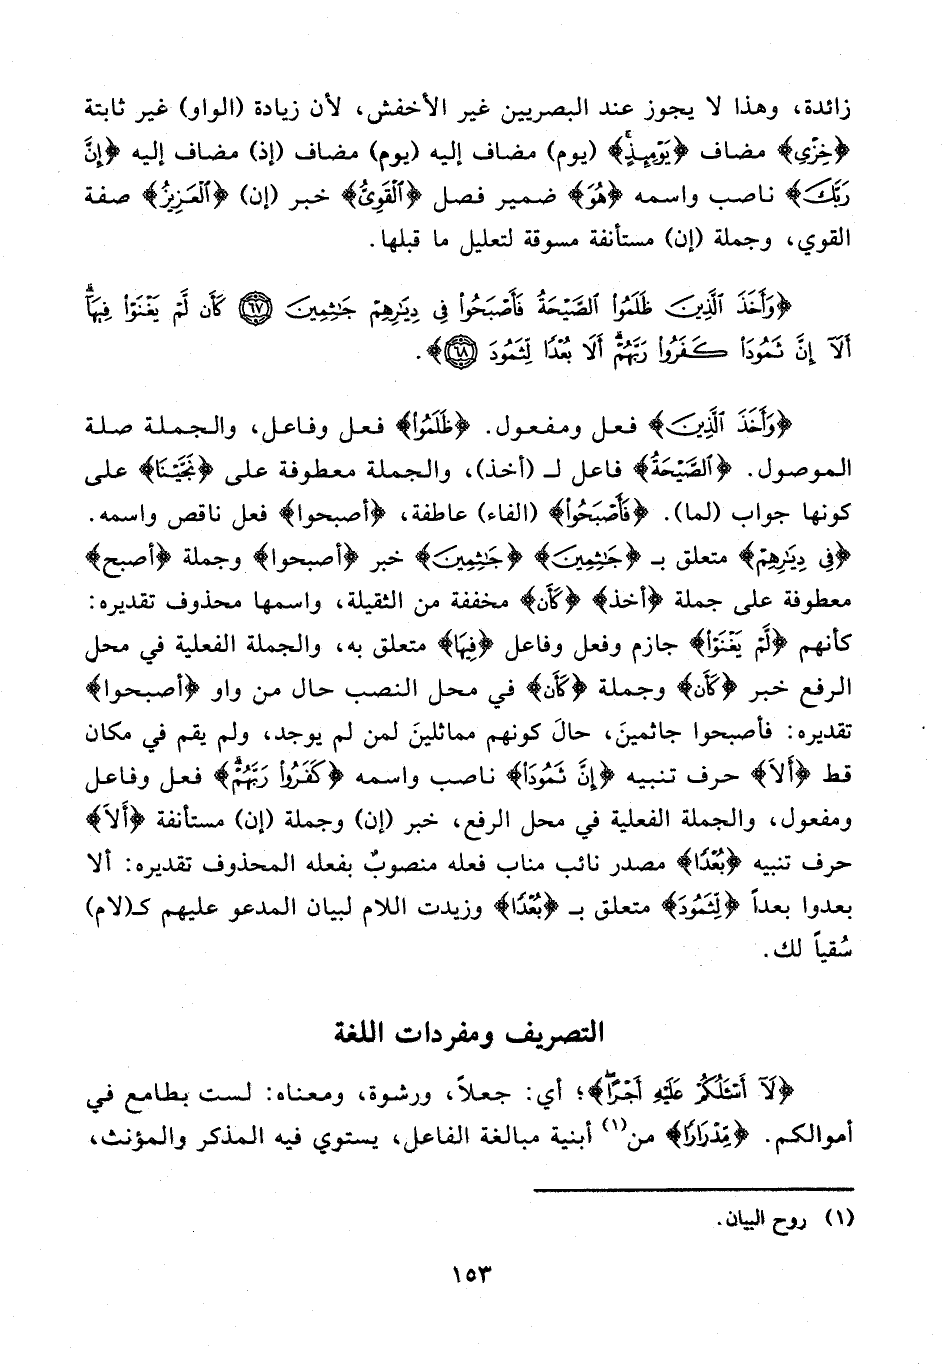 زائدة، وهذا لا يجوز عند البصريين غير الأخفش، لأن زيادة (الواو) غير ثابتة
﴿خِزْيِ﴾ مضاف ﴿يَوْمِئِذٍ﴾ (يوم) مضاف إليه (يوم) مضاف (إذ) مضاف إليه ﴿إِنَّ
رَبَّكَ﴾ ناصب واسمه ﴿هُوَ﴾ ضمير فصل ﴿ٱلْقَوِيُّ﴾ خبر (إن) ﴿ٱلْعَزِيزُ﴾ صفة
القوي، وجملة (إن) مستأنفة مسوقة لتعليل ما قبلها.
﴿وَأَخَذَ ٱلَّذِينَ ظَلَمُوا۟ ٱلصَّيْحَةُ فَأَصْبَحُوا۟ فِى دِيَٰرِهِمْ جَٰثِمِينَ ٦٧ كَأَن لَّمْ يَغْنَوْا۟ فِيهَآۗ
أَلَآ إِنَّ ثَمُودَا۟ كَفَرُوا۟ رَبَّهُمْۗ أَلَا بُعْدًا لِّثَمُودَ ٦٨﴾.
﴿وَأَخَذَ ٱلَّذِينَ﴾ فعل ومفعول. ﴿ظَلَمُوا۟﴾ فعل وفاعل، والجملة صلة
الموصول. ﴿ٱلصَّيْحَةُ﴾ فاعل لـ (أخذ)، والجملة معطوفة على ﴿نَجَّيْنَا﴾ على
كونها جواب (لما). ﴿فَأَصْبَحُوا۟﴾ (الفاء) عاطفة، ﴿أصبحوا﴾ فعل ناقص واسمه.
﴿فِى دِيَٰرِهِمْ﴾ متعلق بـ ﴿جَٰثِمِينَ﴾ ﴿جَٰثِمِينَ﴾ خبر ﴿أصبحوا﴾ وجملة ﴿أصبح﴾
معطوفة على جملة ﴿أخذ﴾ ﴿كَأَن﴾ مخففة من الثقيلة، واسمها محذوف تقديره:
كأنهم ﴿لَّمْ يَغْنَوْا۟﴾ جازم وفعل وفاعل ﴿فِيهَا﴾ متعلق به، والجملة الفعلية في محل
الرفع خبر ﴿كَأَن﴾ وجملة ﴿كَأَن﴾ في محل النصب حال من واو ﴿أصبحوا﴾
تقديره: فأصبحوا جاثمينَ، حالَ كونهم مماثلينَ لمن لم يوجد، ولم يقم في مكان
قط ﴿أَلَآ﴾ حرف تنبيه ﴿إِنَّ ثَمُودَا۟﴾ ناصب واسمه ﴿كَفَرُوا۟ رَبَّهُمْۗ﴾ فعل وفاعل
ومفعول، والجملة الفعلية في محل الرفع، خبر (إن) وجملة (إن) مستأنفة ﴿أَلَا﴾
حرف تنبيه ﴿بُعْدًا﴾ مصدر نائب مناب فعله منصوبٌ بفعله المحذوف تقديره: ألا
بعدوا بعداً ﴿لِّثَمُودَ﴾ متعلق بـ ﴿بُعْدًا﴾ وزيدت اللام لبيان المدعو عليهم كـ(لام)
سُقياً لك.
التصريف ومفردات اللغة
﴿لَآ أَسْـَٔلُكُمْ عَلَيْهِ أَجْرًا﴾؛ أي: جعلاً، ورشوة، ومعناه: لست بطامع في
أموالكم. ﴿مِّدْرَارًا﴾ من(١) أبنية مبالغة الفاعل، يستوي فيه المذكر والمؤنث،
(١) روح البيان.
١٥٣